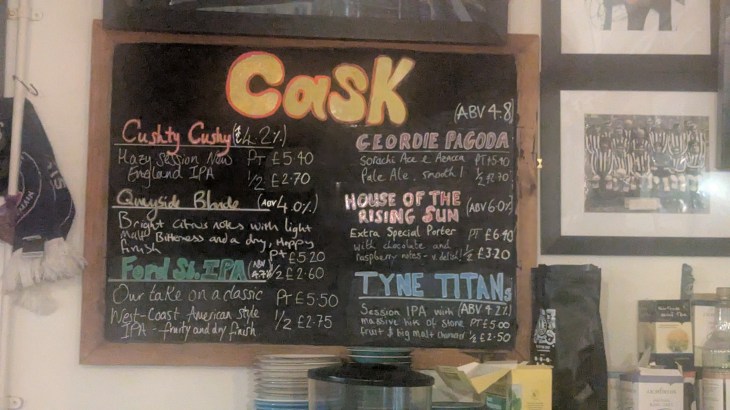 Cask
Cushty Cushy (4.2%)
Hazy Session New PT £5.40
England IPA 1/2 £2.70
Quayside Blonde (ABV 4.0%)
Bright citrus notes with light
Malt Bitterness and a dry, Hoppy
finish Pt £5.20
Ford St. IPA (ABV 4.7%) 1/2 £2.60
Our take on a classic PT £5.50
West-Coast American style 1/2 £2.75
IPA - fruity and dry finish
(ABV 4.8)
GEORDIE PAGODA
Sorachi Ace & Azacca PT £5.40
Pale Ale, smooth! 1/2 £2.70
HOUSE OF THE
RISING SUN (ABV 6.0%)
Extra Special Porter PT £6.40
with chocolate and
raspberry notes - v. delish! 1/2 £3.20
TYNE TITANs
Session IPA with (ABV 4.2%)
massive hits of stone PT £5.00
fruit & big malt character 1/2 £2.50